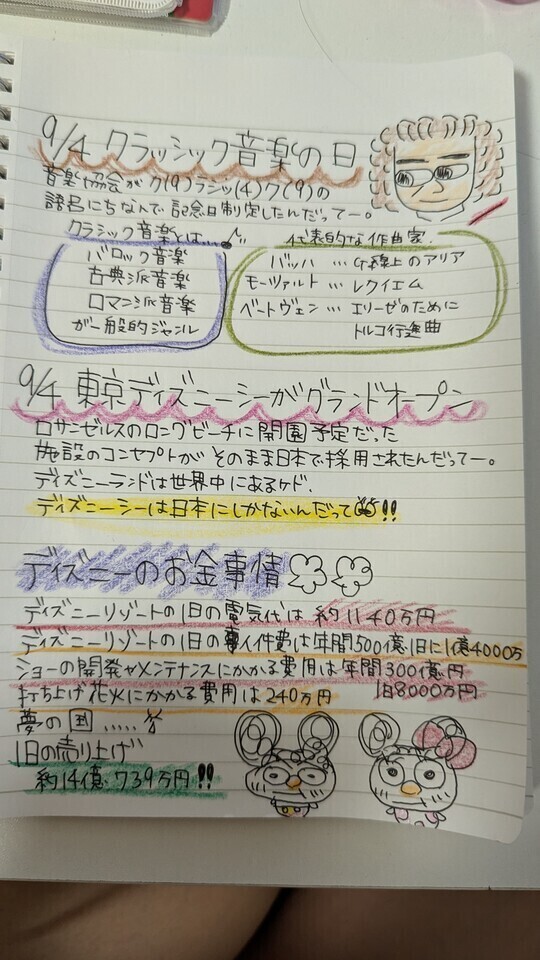 9/4 クラッシック音楽の日
音楽協会がク(9)ラシッ(4)ク(9)の
語呂にちなんで記念日制定したんだってー。
クラシック音楽とは…
バロック音楽
古典派音楽
ロマン派音楽
が一般的ジャンル
代表的な作曲家
バッハ … G線上のアリア
モーツァルト … レクイエム
ベートヴェン … エリーゼのために
トルコ行進曲
9/4 東京ディズニーシーがグランドオープン
ロサンゼルスのロングビーチに開園予定だった
施設のコンセプトがそのまま日本で採用されたんだってー。
ディズニーランドは世界中にあるケド、
ディズニーシーは日本にしかないんだって!!
ディズニーのお金事情
ディズニーリゾートの1日の電気代は 約1140万円
ディズニーリゾートの1日の人件費は年間500億、1日に1億4000万
ショーの開発やメンテナンスにかかる費用は年間300億円
1日8000万円
打ち上げ花火にかかる費用は240万円
夢の国.....
1日の売り上げ
約14億739万円!!